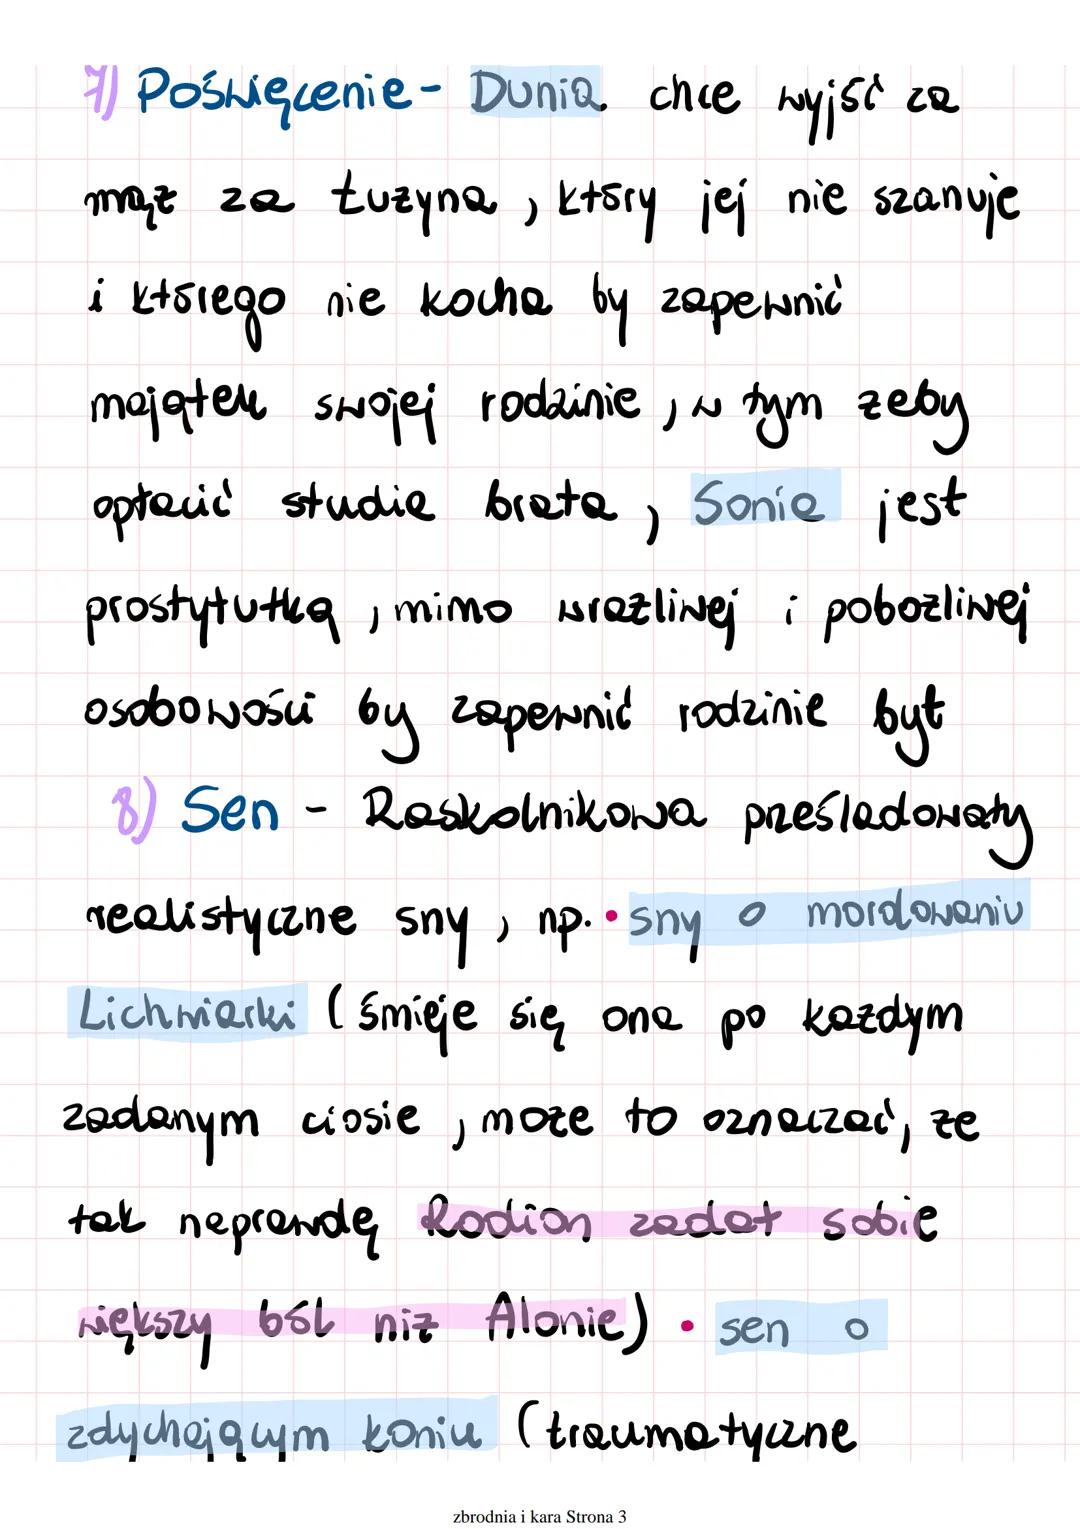 7) Poświęcenie - Dunia chce wyjść za
mąż za Łużyna, który jej nie szanuje
i którego nie kocha by zapewnić
majątek swojej rodzinie, w tym żeby
opłacić studia brata, Sonia jest
prostytutką, mimo wrażliwej i pobożliwej
osobowości by zapewnić rodzinie byt
8) Sen - Raskolnikowa prześladowały
realistyczne sny, np. • sny o mordowaniu
Lichwiarki (śmieje się ona po każdym
zadanym ciosie, może to oznaczać, że
tak naprawdę Rodion zadał sobie
większy ból niż Alonie) • sen o
zdychającym koniu (traumatyczne
zbrodnia i kara Strona 3